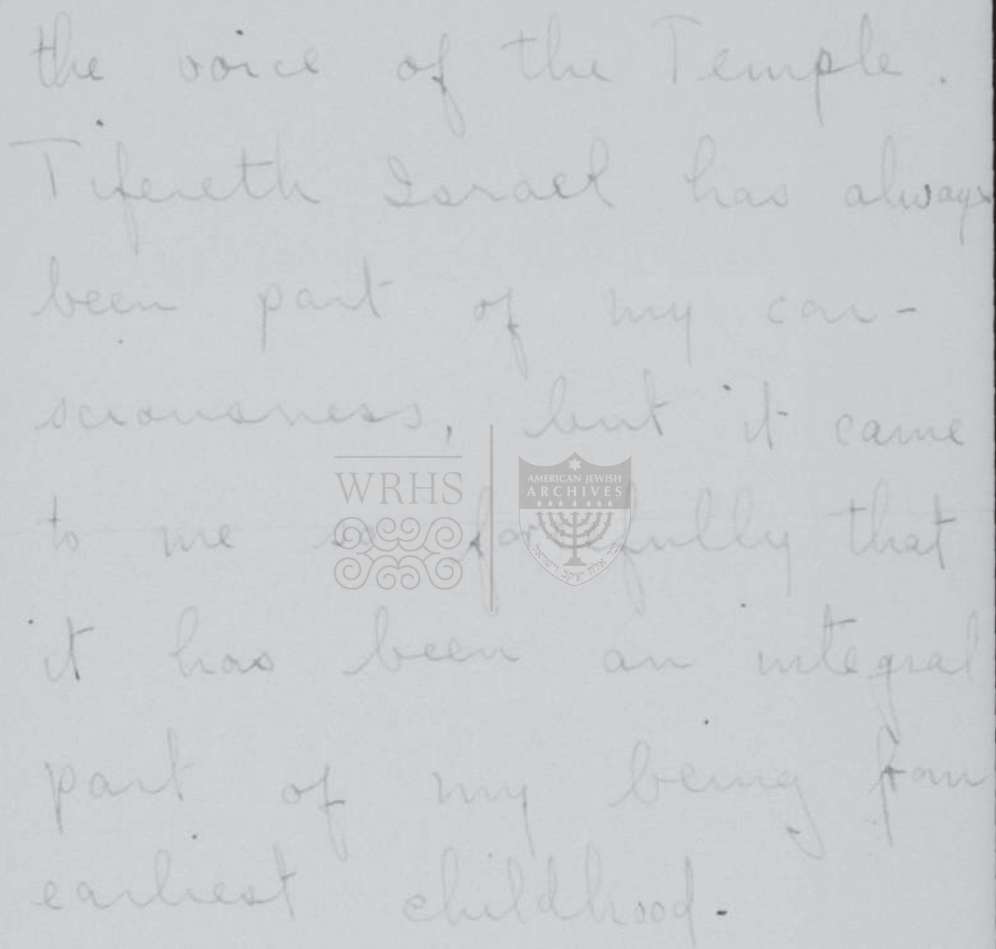 the voice of the Temple.
Tifereth Israel has always
been part of my con-
sciousness, but it came
to me so forcefully that
it has been an integral
part of my being from
earliest childhood.
WRHS
AMERICAN JEWISH
ARCHIVES